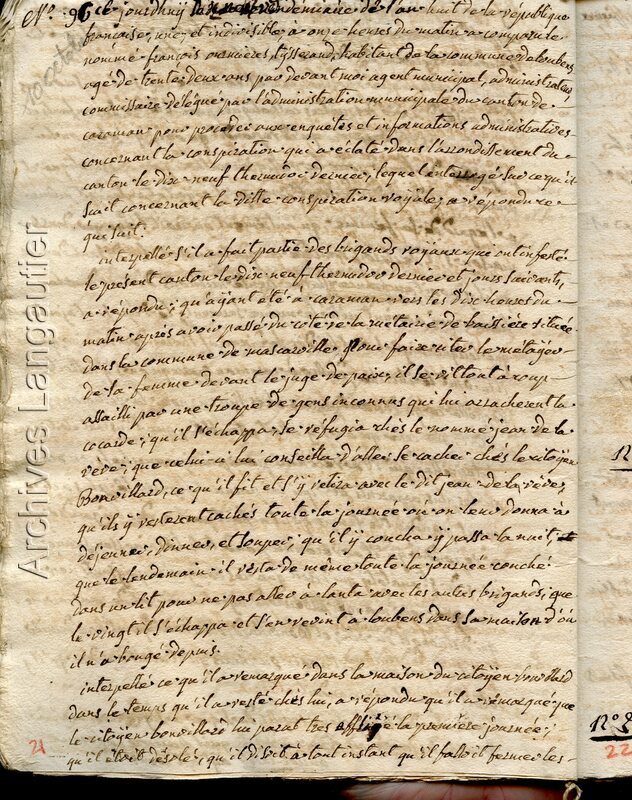 N.o 9
ce jourdhuy vendemiaire de l'an huit de la république
francaise, une et indivisible a onze heures du matin a comparu le
nommé françois tysserand, habitant de la commune de loubens
agé de trente deux ans par devant moi agent municipal, administrateur,
commissaire délégué par l'administration municipale du canton de
caraman pour proceder aux enquêtes et informations administratives
concernant la conspiration qui a éclaté dans l'arrondissement du
canton le dix neuf thermidor dernier, lequel interrogé sur ce qu'il
sait concernant la ditte conspiration royale, a répondu ce
qui suit.
interpellé s'il a fait partie des brigands royaux qui ont infesté
le present canton le dix neuf thermidor dernier et jours suivants,
a répondu; qu'ayant été a caraman vers les dix heures du
matin après avoir passé du coté de la métairie de baissière située
dans la commune de mascarville pour faire citer le métayer
de sa femme devant le juge de paix, il se vit tout à coup
assailli par une troupe de gens inconnus qui lui arracherent la
cocarde; qu'il s'échappa, se réfugia chès le nommé jean de la
rève; que celui ci lui conseilla d'aller se cacher chès le citoyen
Bonvillard, ce qu'il fit et s'y retira avec le dit jean de la rève,
qu'ils y resterent cachés toute la journée ou on leur donna à
déjeuner, dinner, et souper, qu'il y coucha y passa la nuit,
que le lendemain il resta de même toute la journée couché
dans un lit pour ne pas aller à lanta avec les autres brigands; que
le vingt il s'échappa et s'en revint à loubens dans sa maison d'ou
il n'a bougé depuis.
interpellé ce qu'il a remarqué dans la maison du citoyen bonvillard
dans le temps qu'il a resté chès lui, a répondu qu'il a remarqué que
le citoyen bonvillard lui parut tres affligé la première journée;
qu'il étoit désolé, qu'il disoit à tout instant qu'il falloit fermer les
21
N.o
22
Archives Langautier